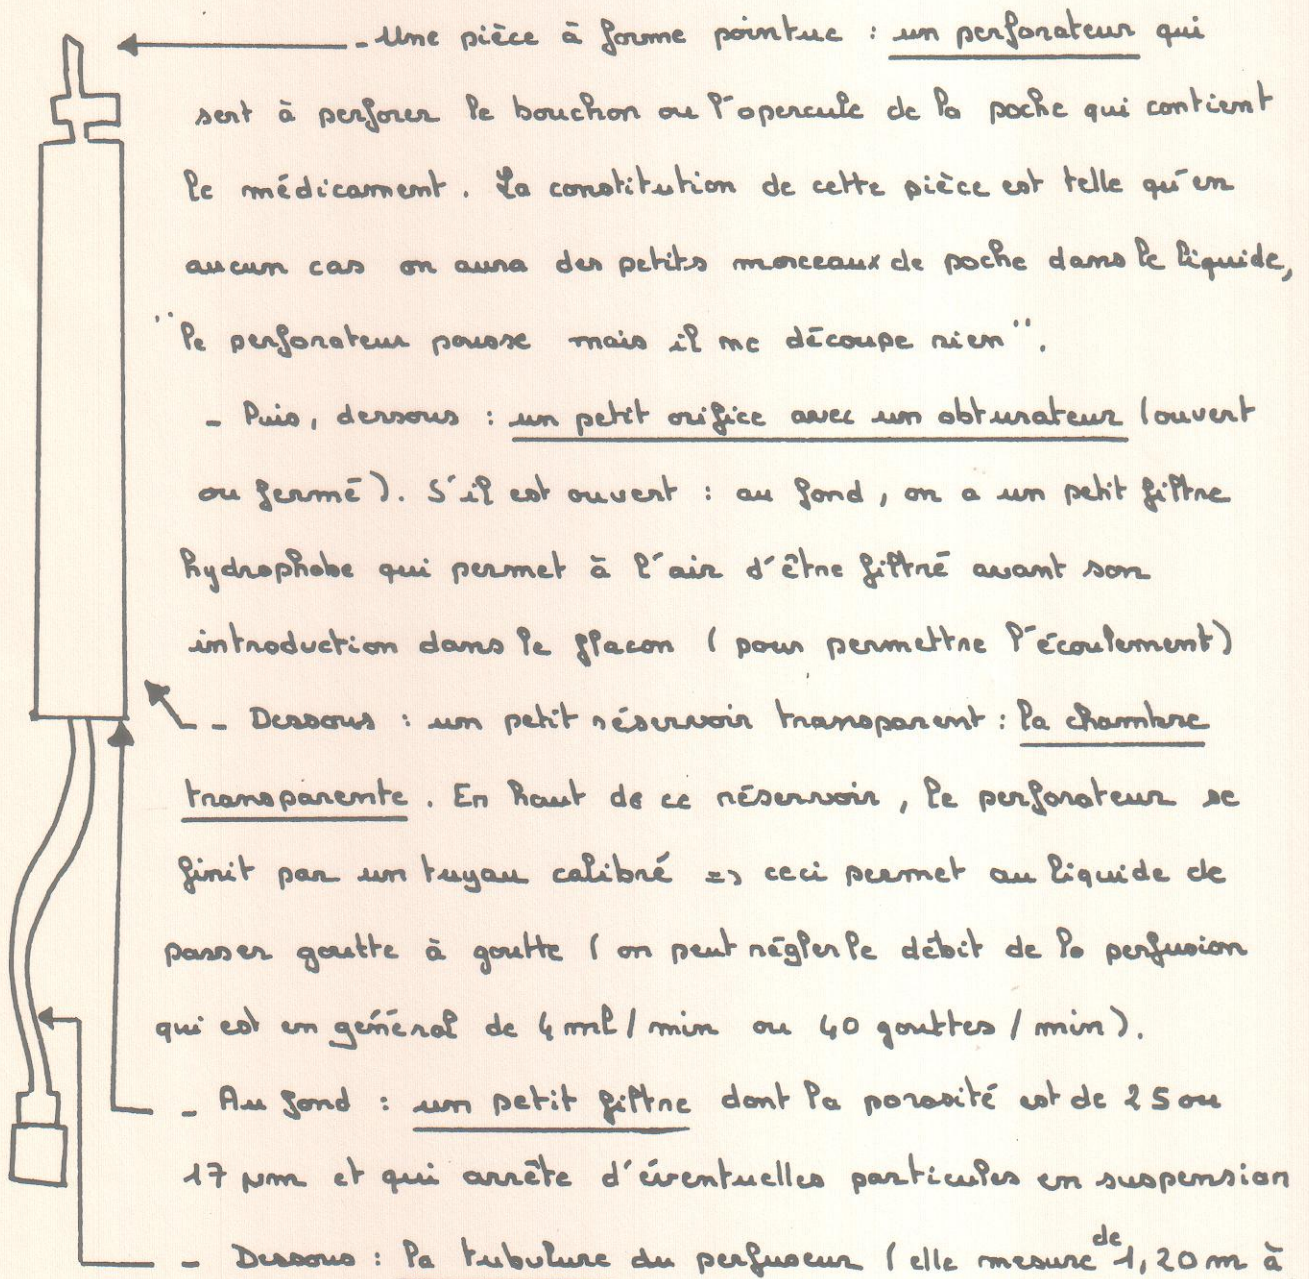 - Une pièce à forme pointue : un perforateur qui
sert à perforer le bouchon ou l'opercule de la poche qui contient
le médicament. La constitution de cette pièce est telle qu'en
aucun cas on aura des petits morceaux de poche dans le liquide,
"le perforateur pousse mais il ne découpe rien".
- Puis, dessous : un petit orifice avec un obturateur (ouvert
ou fermé). S'il est ouvert : au fond, on a un petit filtre
hydrophobe qui permet à l'air d'être filtré avant son
introduction dans le flacon (pour permettre l'écoulement)
- Dessous : un petit réservoir transparent : la chambre
transparente. En haut de ce réservoir, le perforateur se
finit par un tuyau calibré => ceci permet au liquide de
passer goutte à goutte (on peut régler le débit de la perfusion
qui est en général de 4 ml/min ou 40 gouttes/min).
- Au fond : un petit filtre dont la porosité est de 25 ou
17 µm et qui arrête d'éventuelles particules en suspension
- Dessous : la tubulure du perfuseur (elle mesure de 1,20 m à